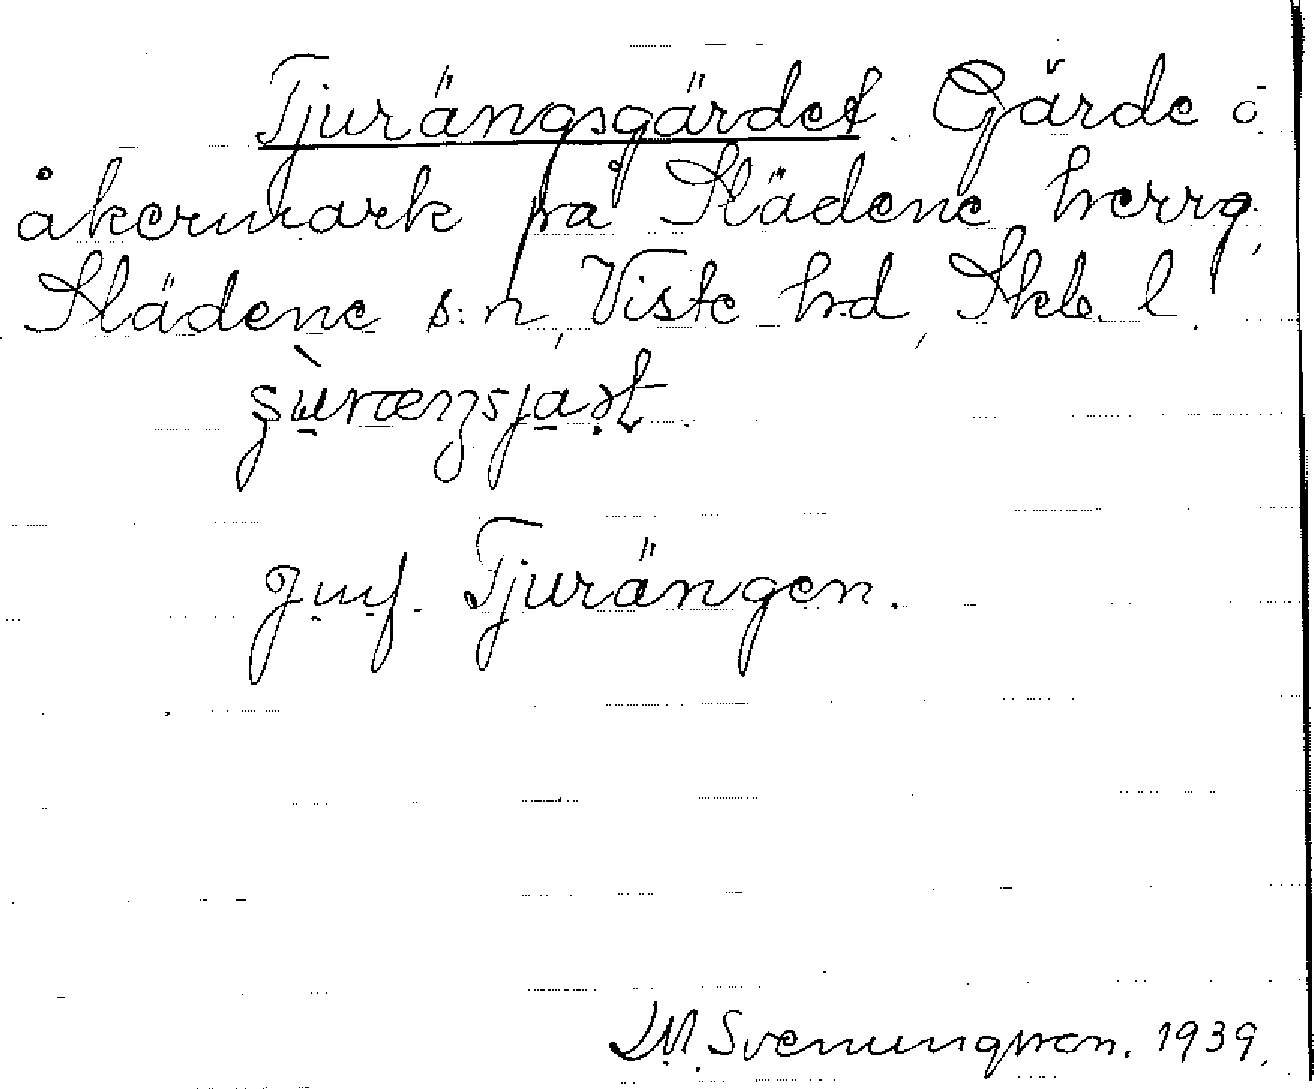 Tjurängsgärdet. Gärde o
åkermark på Slädene herrg.,
Slädene s:n, Viste hd, Skb. l.
Jmf. Tjurängen.
Svenungsson. 1939.